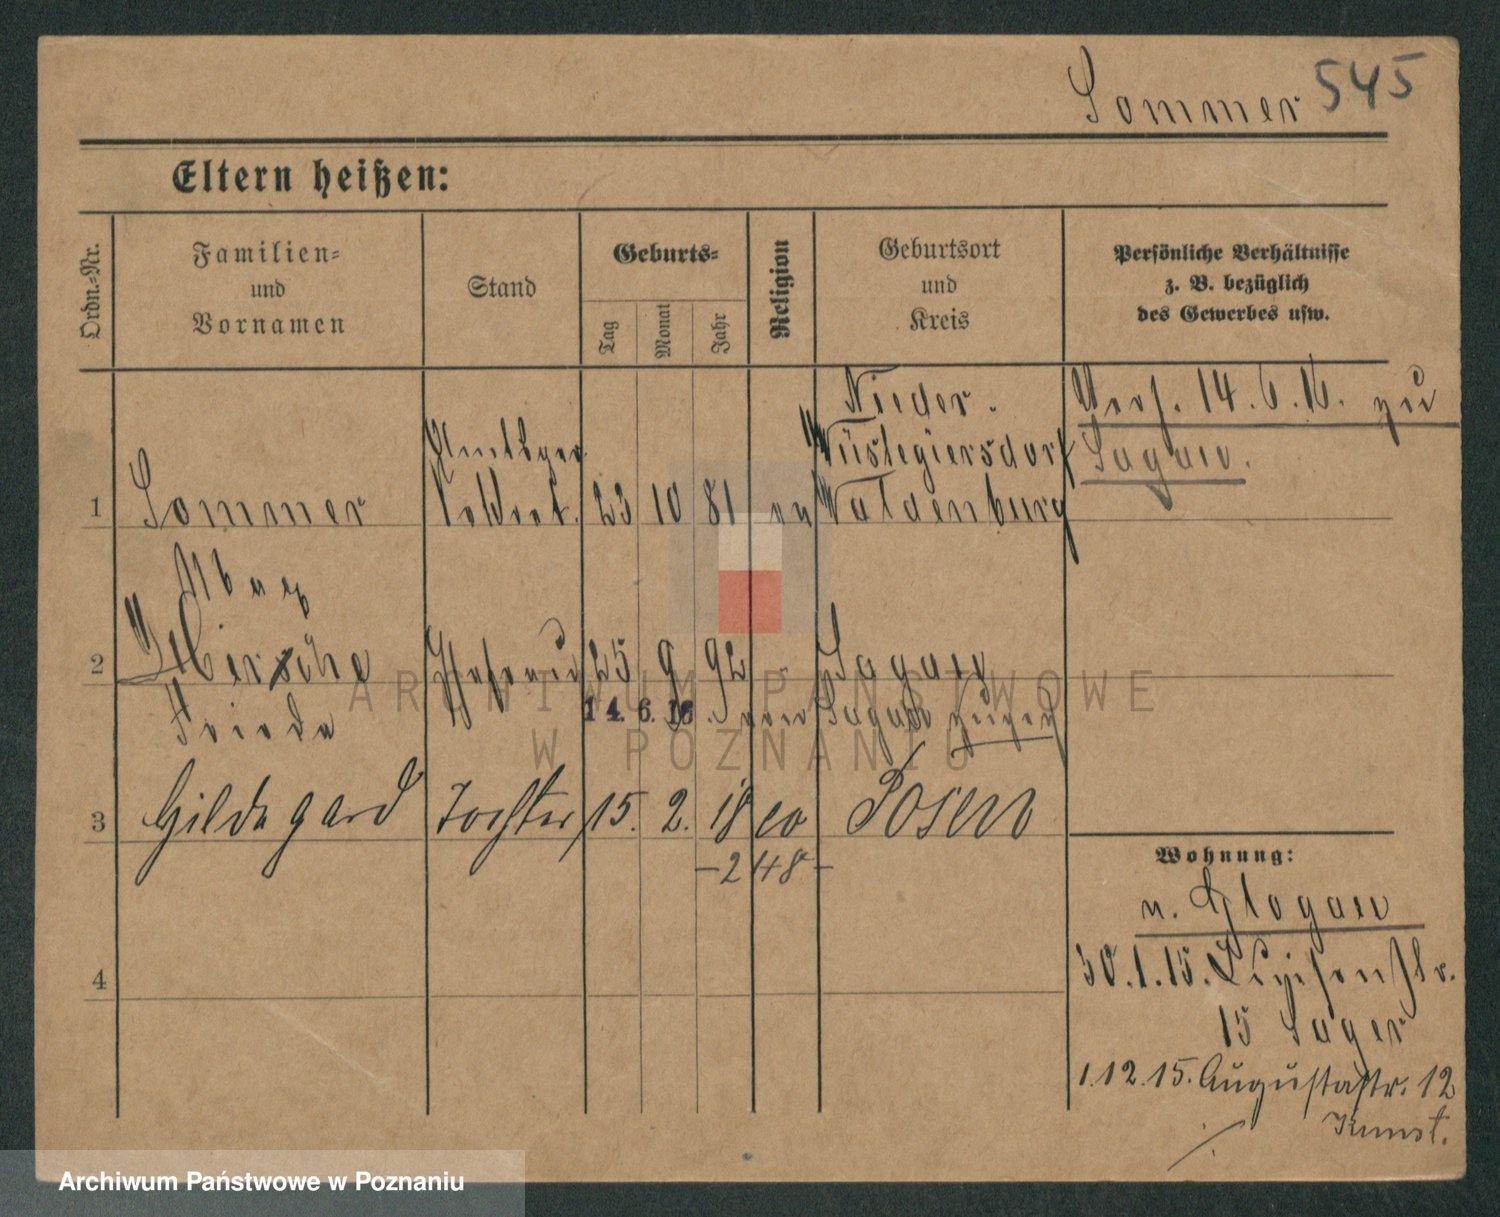 Sommer 545
Eltern heißen:
Ordn.-Nr.
Familien-
und
Vornamen
Stand
Geburts-
Tag
Monat
Jahr
Religion
Geburtsort
und
Kreis
Persönliche Verhältnisse
z. B. bezüglich
des Gewerbes usw.
1
Sommer
23 10 81 ev
Nieder.
Wüstegiersdorf
Waldenburg
14.6.16. zu
Sagan.
Max
2
Ehefrau 25 9 92 Sagan
Frieda
14. 6. 16 . von Sagan
3 Hildegard Tochter 15. 2. 18 ev Posen
-248-
4
Wohnung:
n. Glogau
30.1.15. Luisenstr.
15 Sager
1.12.15. Augustastr. 12
Kunst.
ARCHIWUM PAŃSTWOWE
W POZNANIU
Archiwum Państwowe w Poznaniu